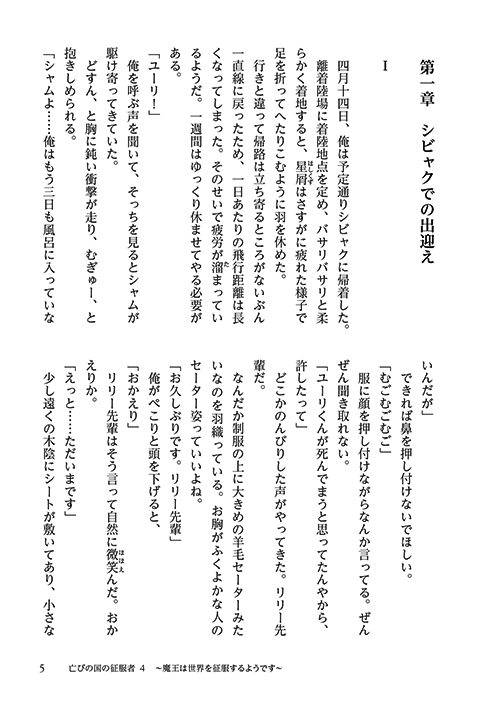 第一章　シビャクでの出迎え
Ⅰ
　四月十四日、俺は予定通りシビャクに帰着した。
　離着陸場に着陸地点を定め、バサリバサリと柔
らかく着地すると、星屑はさすがに疲れた様子で
ほしくず
足を折ってへたりこむように羽を休めた。
　行きと違って帰路は立ち寄るところがないぶん
一直線に戻ったため、一日あたりの飛行距離は長
くなってしまった。そのせいで疲労が溜まってい
た
るようだ。一週間はゆっくり休ませてやる必要が
ある。
「ユーリ！」
　俺を呼ぶ声を聞いて、そっちを見るとシャムが
駆け寄ってきていた。
　どすん、と胸に鈍い衝撃が走り、むぎゅー、と
抱きしめられる。
「シャムよ……俺はもう三日も風呂に入っていな
いんだが」
　できれば鼻を押し付けないでほしい。
「むごむごむご」
　服に顔を押し付けながらなんか言ってる。ぜん
ぜん聞き取れない。
「ユーリくんが死んでまうと思ってたんやから、
許したって」
　どこかのんびりした声がやってきた。リリー先
輩だ。
　なんだか制服の上に大きめの羊毛セーターみた
いなのを羽織っている。お胸がふくよかな人の
セーター姿っていいよね。
「お久しぶりです。リリー先輩」
　俺がぺこりと頭を下げると、
「おかえり」
　リリー先輩はそう言って自然に微笑んだ。おか
ほほえ
えりか。
「えっと……ただいまです」
　少し遠くの木陰にシートが敷いてあり、小さな
5　亡びの国の征服者 4　～魔王は世界を征服するようです～